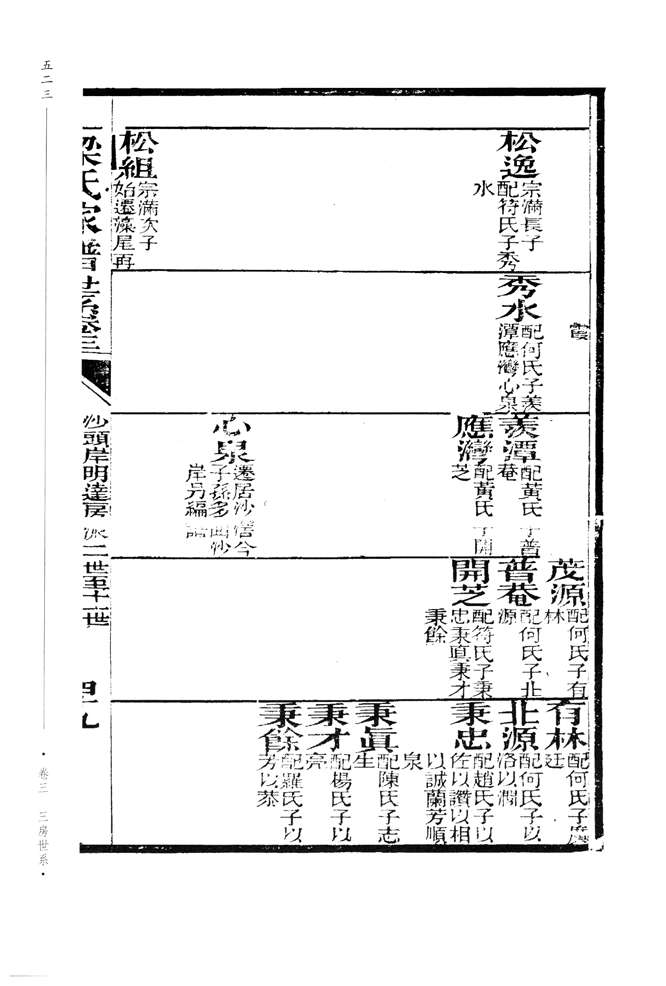 松逸
宗滿長子
配符氏子秀
水
松組
宗滿次子
始遷藻尾再
霞
秀水
配何氏子羨
潭應灣心泉
羨潭
配黃氏子普
菴
應灣
配黃氏子開
芝
心泉
遷居沙滘今
子孫多由沙
岸另編
茂源
配何氏子有
林
普菴
配何氏子北
源
開芝
配符氏子秉
忠秉眞秉才
秉餘
有林
配何氏子廣
廷
北源
配何氏子以
洛以澗
秉忠
配趙氏子以
佐以讚以相
以誠蘭芳順
泉
秉眞
配陳氏子志
生
秉才
配楊氏子以
亮
秉餘
配羅氏子以
芳以泰
梁氏家譜世系卷三
沙頭岸明達房派二世至十一世
四十九
五二三
卷三 三房世系